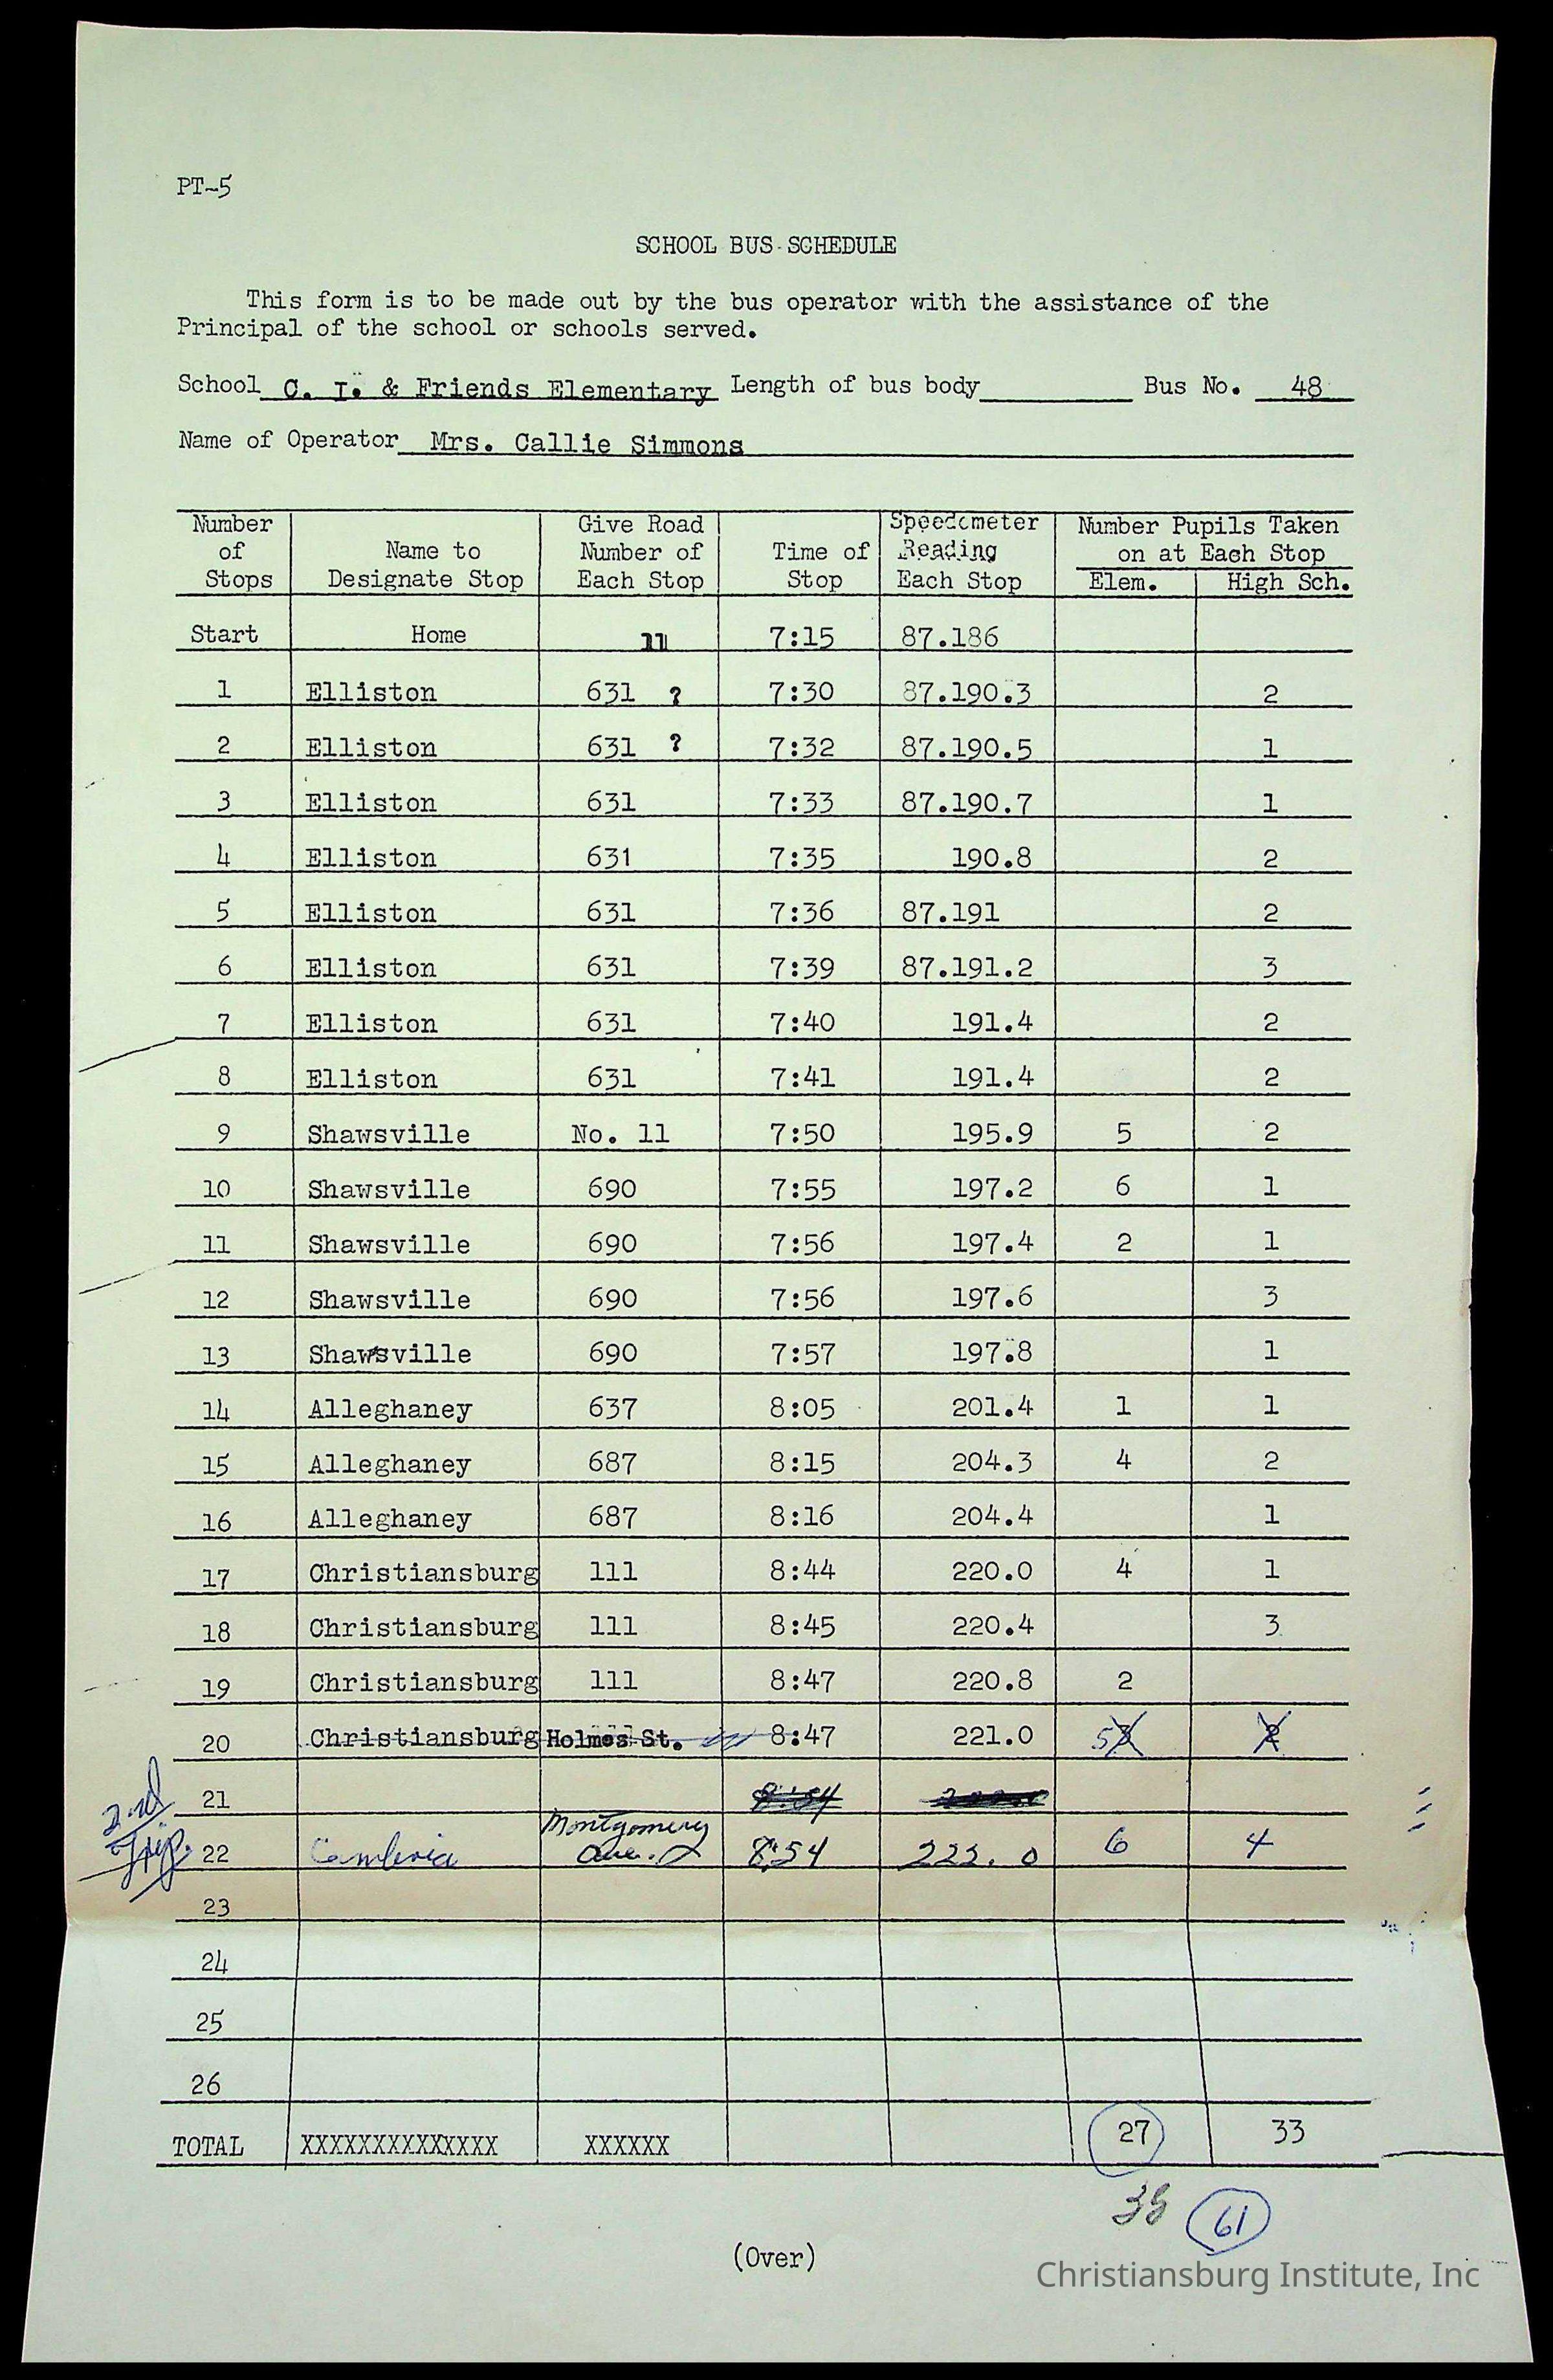 PT-5
SCHOOL BUS SCHEDULE
This form is to be made out by the bus operator with the assistance of the
Principal of the school or schools served.
School C. I. & Friends Elementary Length of bus body Bus No. 48
Name of Operator Mrs. Callie Simmons
Number of Stops Name to Designate Stop Give Road Number of Each Stop Time of Stop Speedometer Reading Each Stop Number Pupils Taken on at Each Stop Elem. High Sch.
Start Home 11 7:15 87.186
1 Elliston 631 ? 7:30 87.190.3 2
2 Elliston 631 ? 7:32 87.190.5 1
3 Elliston 631 7:33 87.190.7 1
4 Elliston 631 7:35 190.8 2
5 Elliston 631 7:36 87.191 2
6 Elliston 631 7:39 87.191.2 3
7 Elliston 631 7:40 191.4 2
8 Elliston 631 7:41 191.4 2
9 Shawsville No. 11 7:50 195.9 5 2
10 Shawsville 690 7:55 197.2 6 1
11 Shawsville 690 7:56 197.4 2 1
12 Shawsville 690 7:56 197.6 3
13 Shawsville 690 7:57 197.8 1
14 Alleghaney 637 8:05 201.4 1 1
15 Alleghaney 687 8:15 204.3 4 2
16 Alleghaney 687 8:16 204.4 1
17 Christiansburg 111 8:44 220.0 4 1
18 Christiansburg 111 8:45 220.4 3
19 Christiansburg 111 8:47 220.8 2
20 Christiansburg Holmes St. 8:47 221.0 5 2
21 8:54
2nd Trip. 22 Cambria Montgomery Ave. 8:54 222.0 6 4
23
24
25
26
TOTAL XXXXXXXXXXXXXX XXXXXX 27 33
38 61
(Over)
Christiansburg Institute, Inc